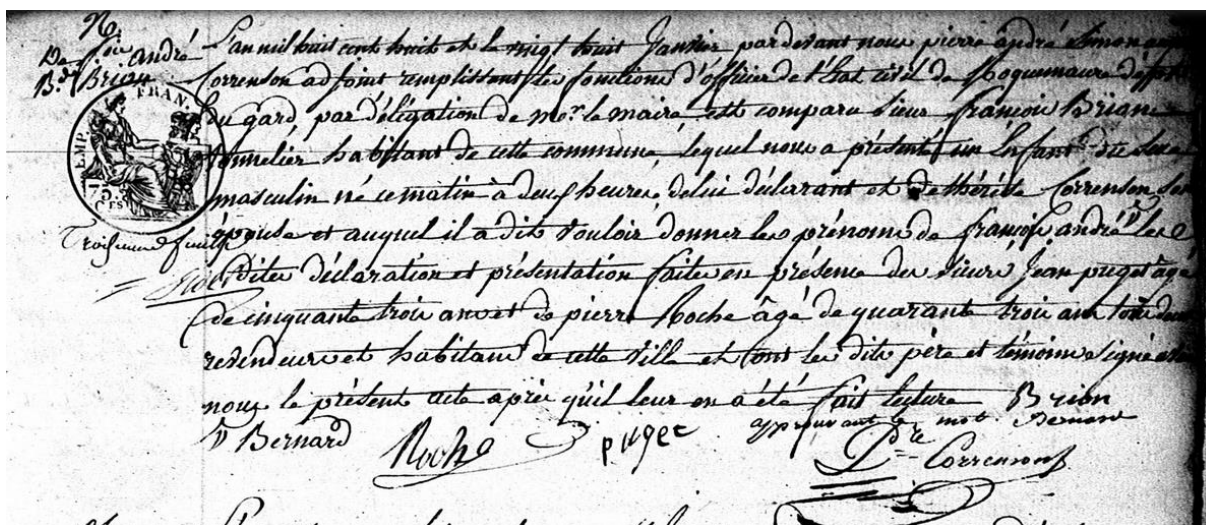 N.
De foi André
Bd. Brion
L'an mil huit cent huit et le vingt huit Janvier pardevant nous pierre andré Simon
Correnson adjoint remplissant les fonctions d'officier de l'état civil de Roquemaure
du gard, par délégation de mor. le maire est comparu Sieur françois Brian
tonnelier habitant de cette commune, lequel nous a présenté un Enfant du Sexe
masculin né ce matin à deux heures de lui déclarant et de thérèse Correnson son
épouse et auquel il a dit vouloir donner les prénoms de françois andré les
dites déclaration et présentation faites en présence des Sieurs Jean puget âgé
de cinquante trois ans et de pierre Roche âgé de quarante trois ans tous deux
revendeurs et habitans de cette ville et ont les dits père et témoins signé avec
nous le présent acte après qu'il leur en a été fait lecture Brion
Bernard
approuvant le mot Bernard
Roche
puget
Correnson
EMP. FRAN.
75. CES
Troisieme feuille